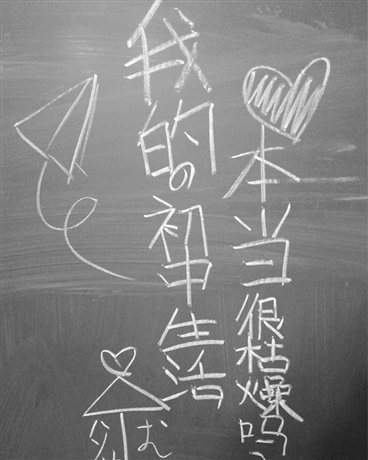 我的の初中生活
本当很枯燥吗
む